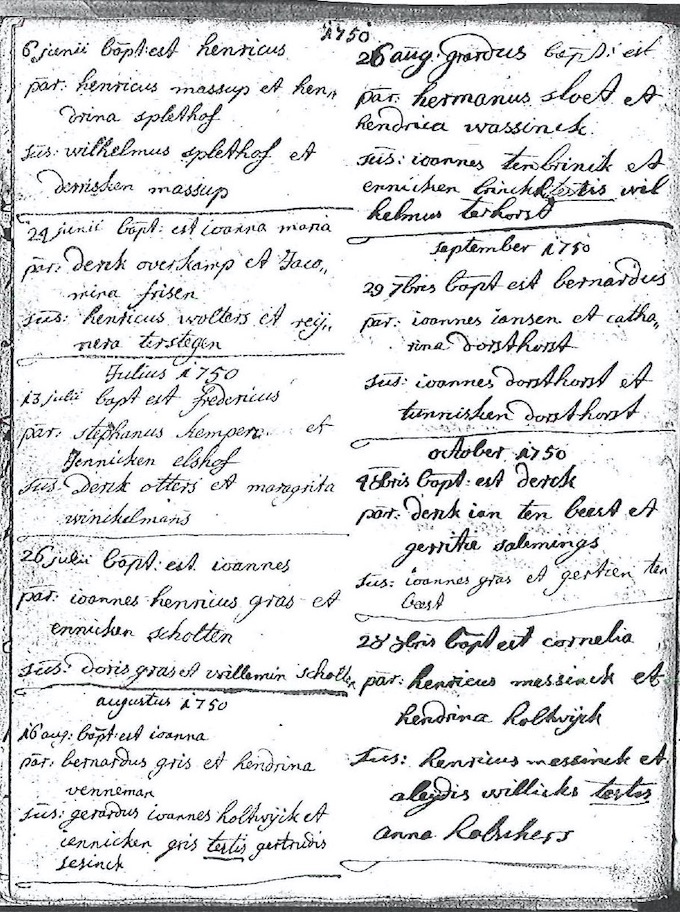 1750
6 junii bapt: est henricus
par: henricus massup et hen„
drina splethof
sus: wilhelmus splethof et
derrisken massup
24 junii bapt: est ioanna maria
par: derck overkamp et Jaco„
mina frisen
sus: henricus wolters et reij„
nera terstegen
Julius 1750
13 julii bapt est fredericus
par: stephanus kempers et
Jennicken elshof
sus: Derck otters et margrita
winckelmans
26 julii bapt: est ioannes
par: ioannes henricus gras et
ennicken scholten
sus: doris gras et willemin scholten
augustus 1750
16 aug: bapt: est ioanna
par: bernardus gris et hendrina
venneman
sus: gerardus ioannes holtwijck et
iennicken gris testis gertrudis
sesinck
26 aug: grardus bapt: est
par: hermanus sloet et
hendrica wassinck.
sus: ioannes tenbrinck et
ennicken brinck testis wil
helmus terhorst
September 1750
29 7bris bapt est bernardus
par: ioannes iansen et catha„
rina dorsthorst
sus: ioannes dorsthorst et
tunnisken dorsthorst
october 1750
4 8bris bapt: est derck
par: derck ian ten beest et
gerritie salemings
sus: ioannes gras et gertien ten
beest
28 8bris bapt est cornelia
par: henricus messinck et
hendrina holtwijck
sus: henricus messinck et
aleydis willicks testis
anna holschers